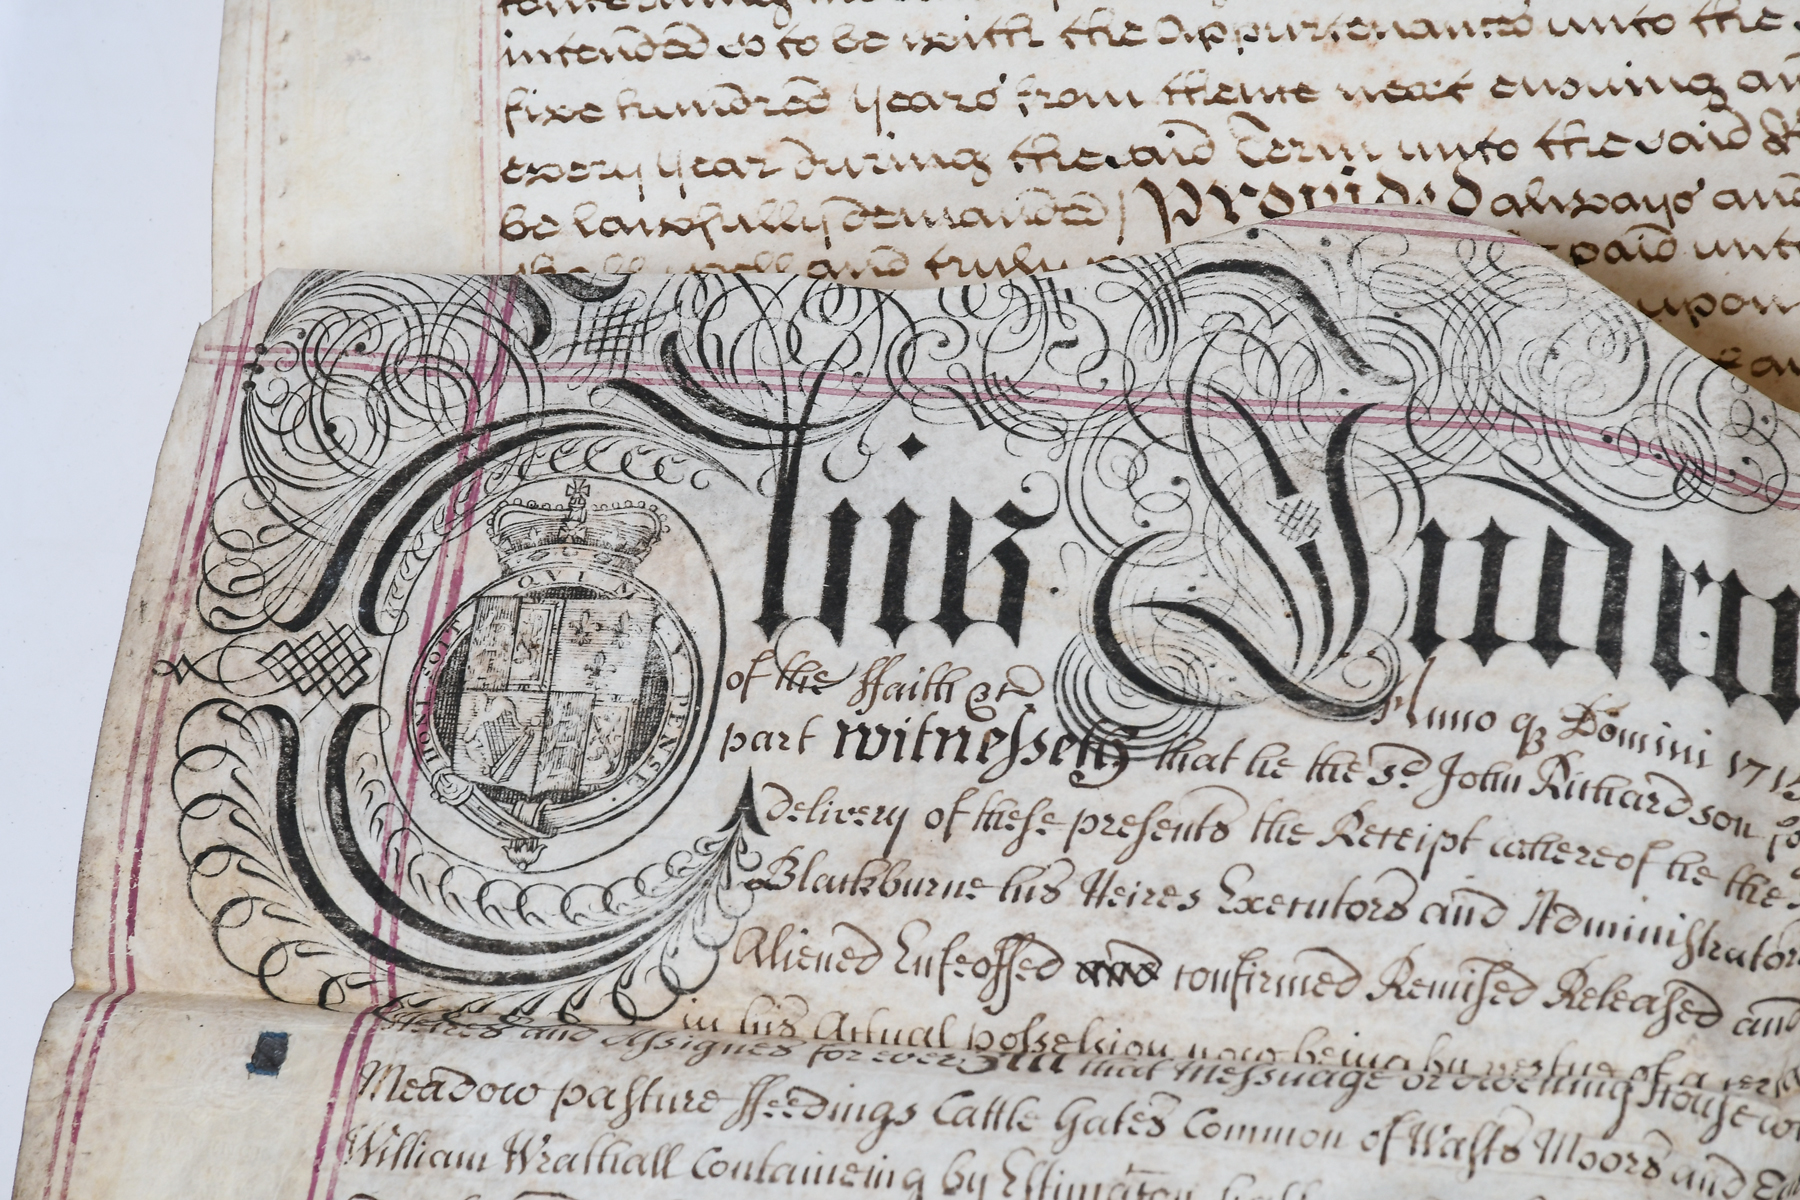 intended so to be with the Appurtenances unto the
five hundred years from thence next ensuing and
every year during the said Term unto the said
be lawfully demanded Provided always and
shall well and truly
paid unto
upon
This Inden
HONI SOIT QUI MAL Y PENSE
of the ffaith &c Anno q Domini 1715
part witnesseth that he the sd John Richardson
delivery of these presents the Receipt whereof he the
Blackburne his Heires Executors and Administrators
Aliened Enfeoffed and confirmed Remised Released and
in his Actual possession now being by vertue of a
Heires and Assignes for ever All that Messuage or dwelling House
Meadow pasture ffeedings Cattle Gates Common of Wasts Moors and
William Wrathall Containeing by Estimaton half